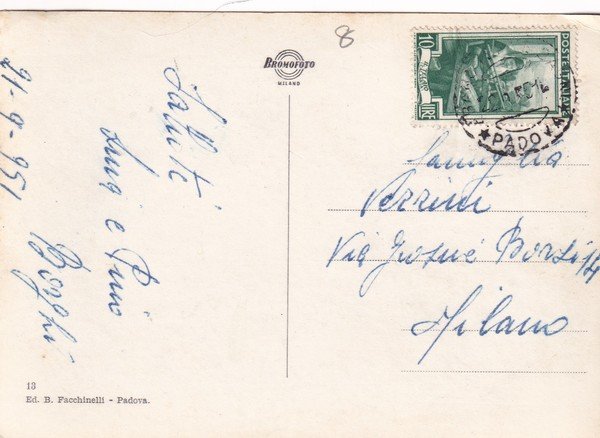 21-9-951
Saluti
Luigi e Pino
Borghi
13
Ed. B. Facchinelli - Padova.
BROMOFOTO
MILANO
8
10
LIRE
POSTE ITALIANE
PADOVA
Famiglia
Verrini
Via Giosuè Borsi 14
Milano